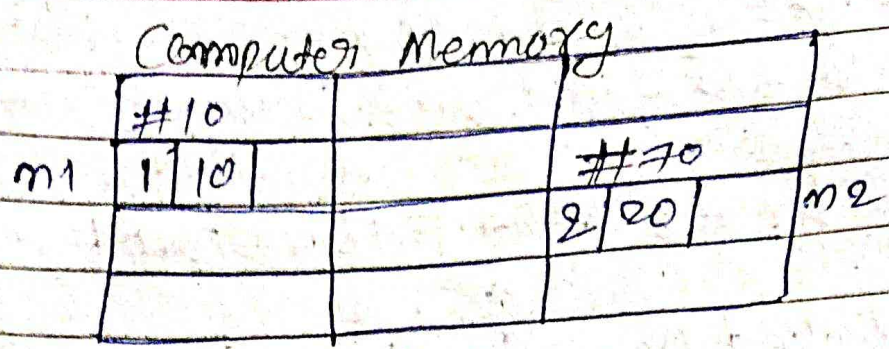 Computer Memory
#10
n1 1 10
#70
2 20 n2